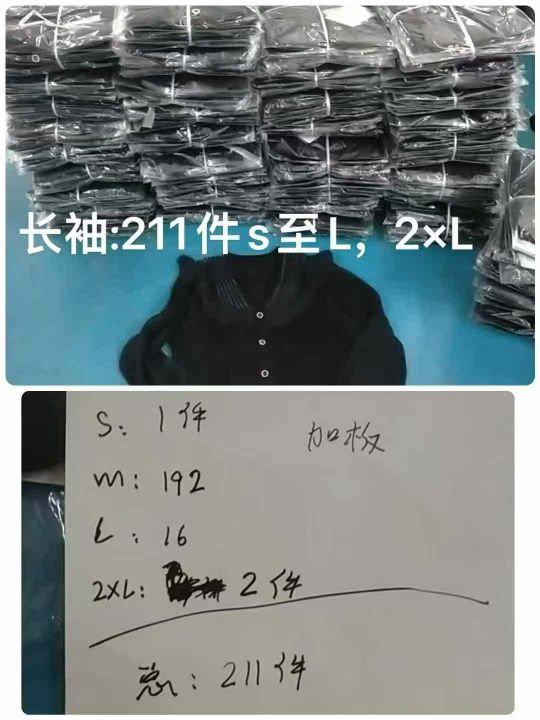 长袖:211件s至L，2×L
S: 1件
加板
m: 192
L: 16
2XL: 2件
总: 211件